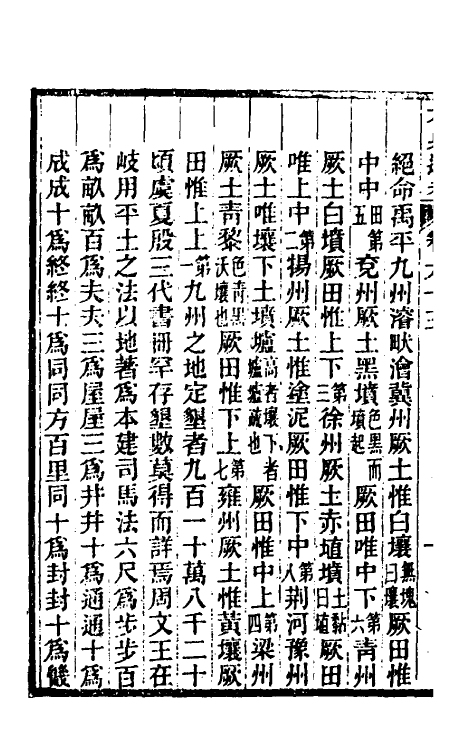 絕命禹平九州濬畎澮冀州厥土惟白壤無塊曰壤厥田惟
中中田第五兗州厥土黑墳色黑而墳起厥田唯中下第六青州
厥土白墳厥田惟上下第三徐州厥土赤埴墳土黏曰埴厥田
唯上中第二揚州厥土惟塗泥厥田惟下中第八荆河豫州
厥土唯壤下土墳壚高者壤下者壚壚疏也厥田惟中上第四梁州
厥土青黎色青黑沃壤也厥田惟下上第七雍州厥土惟黃壤厥
田惟上上第一九州之地定墾者九百一十萬八千二十
頃虞夏殷三代書冊罕存墾數莫得而詳焉周文王在
岐用平土之法以地著爲本建司馬法六尺爲步步百
爲畝畝百爲夫夫三爲屋屋三爲井井十爲通通十爲
成成十爲終終十爲同同方百里同十爲封封十爲畿